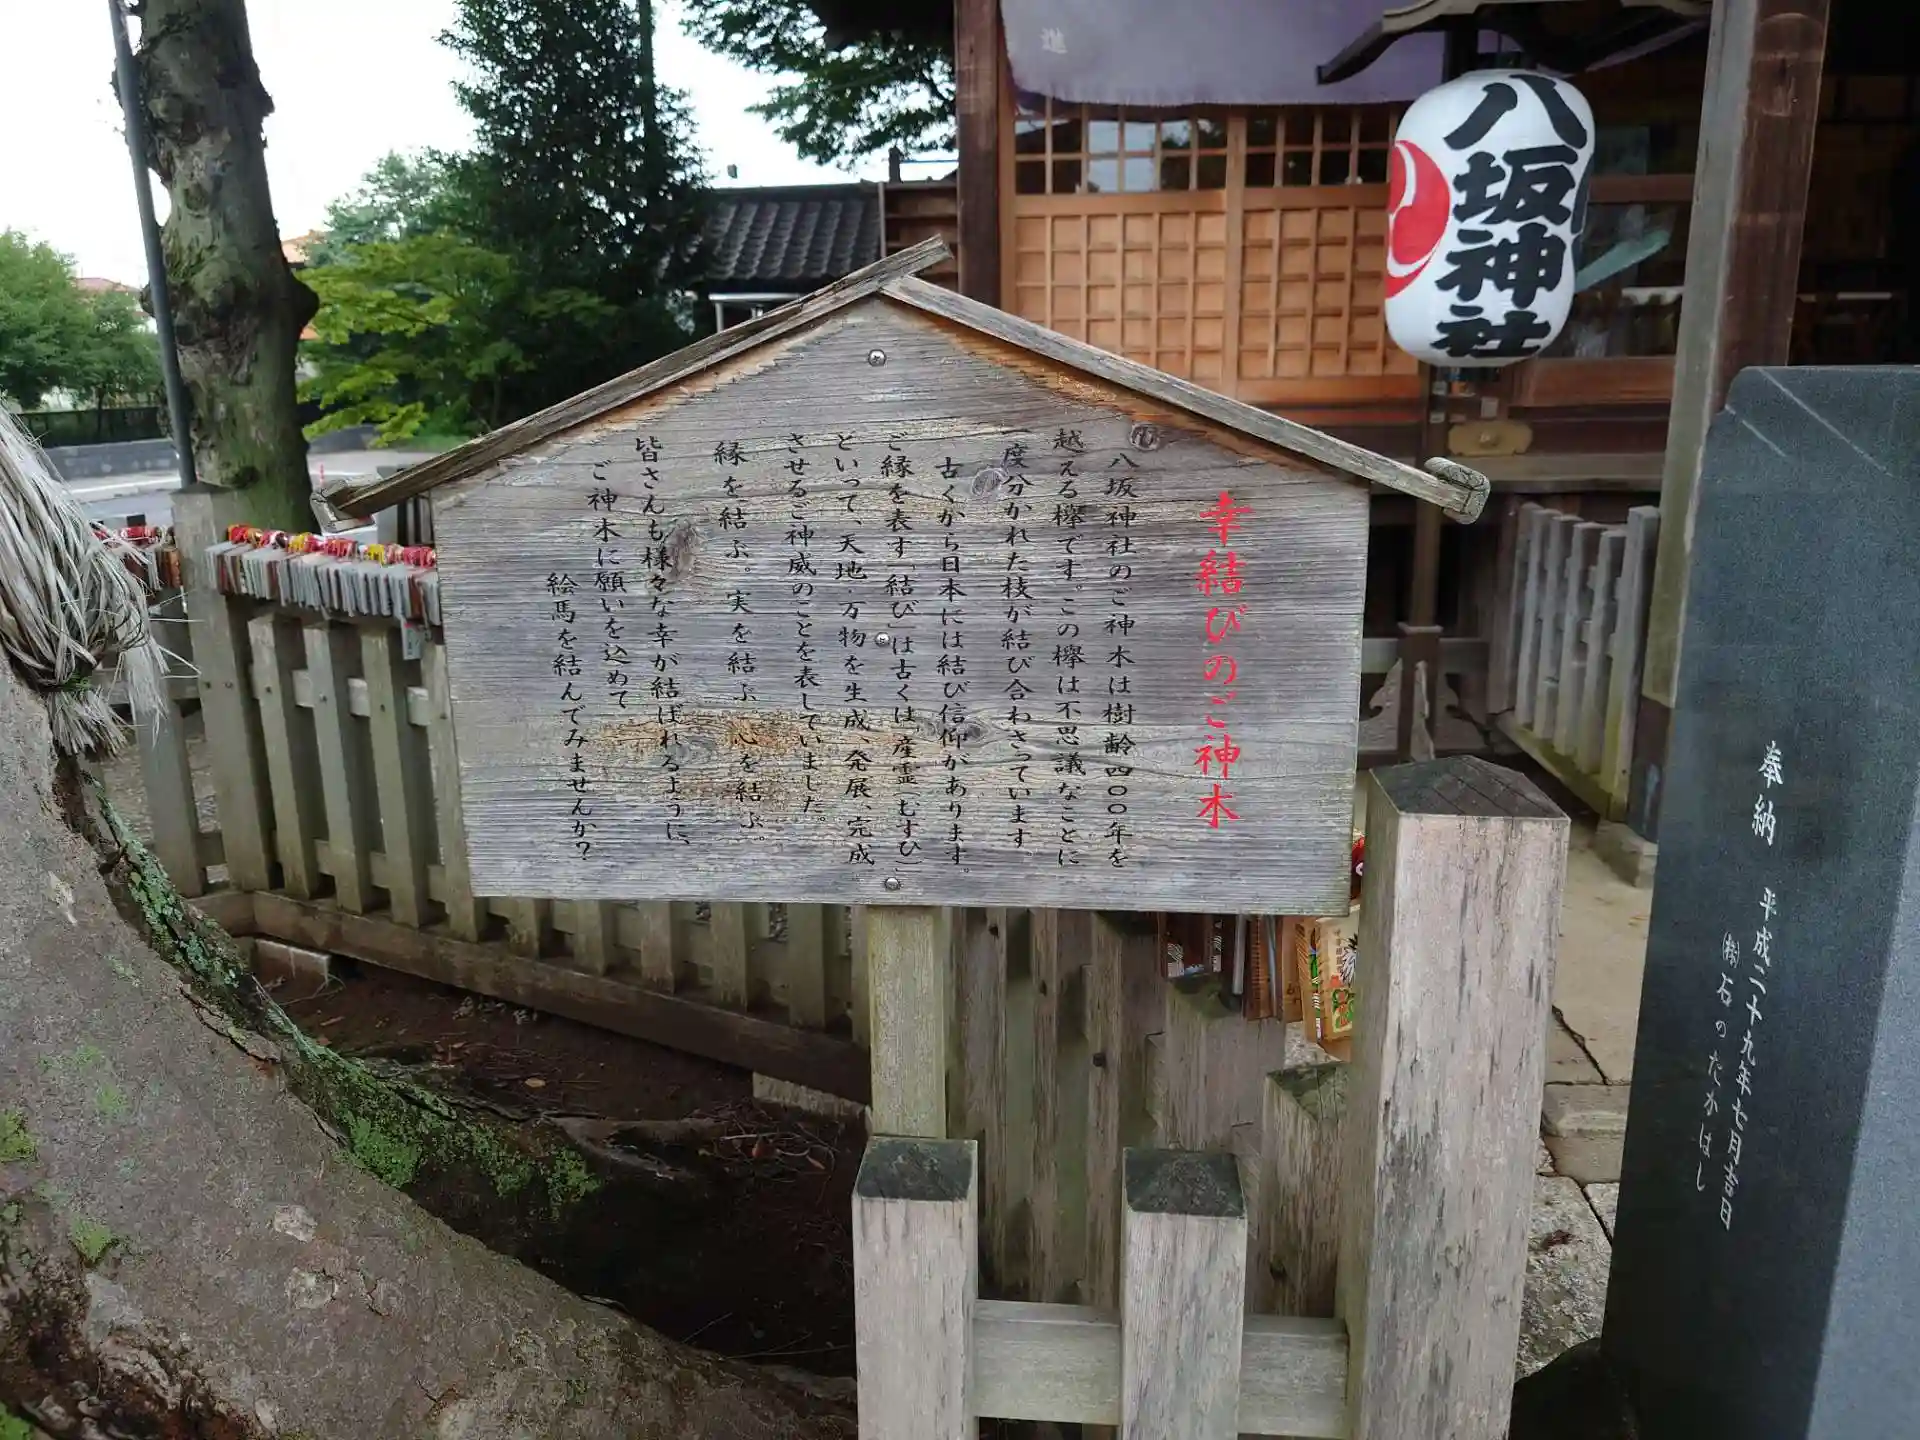 幸結びのご神木
八坂神社のご神木は樹齢四〇〇年を
越える欅です。この欅は不思議なことに
一度分かれた枝が結び合わさっています
古くから日本には結び信仰があります。
ご縁を表す「結び」は古くは「産霊(むすひ)」
といって、天地・万物を生成、発展、完成
させるご神威のことを表していました。
縁を結ぶ。実を結ぶ 心を結ぶ。
皆さんも様々な幸が結ばれるように、
ご神木に願いを込めて
絵馬を結んでみませんか?
八坂神社
進
奉納 平成二十九年七月吉日
㈱石のたかはし